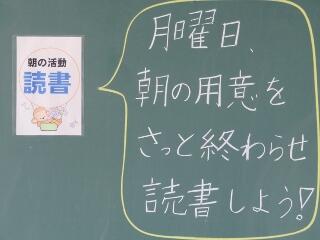 朝の活動
読書
月曜日、
朝の用意を
さっと終わらせ
読書しよう!